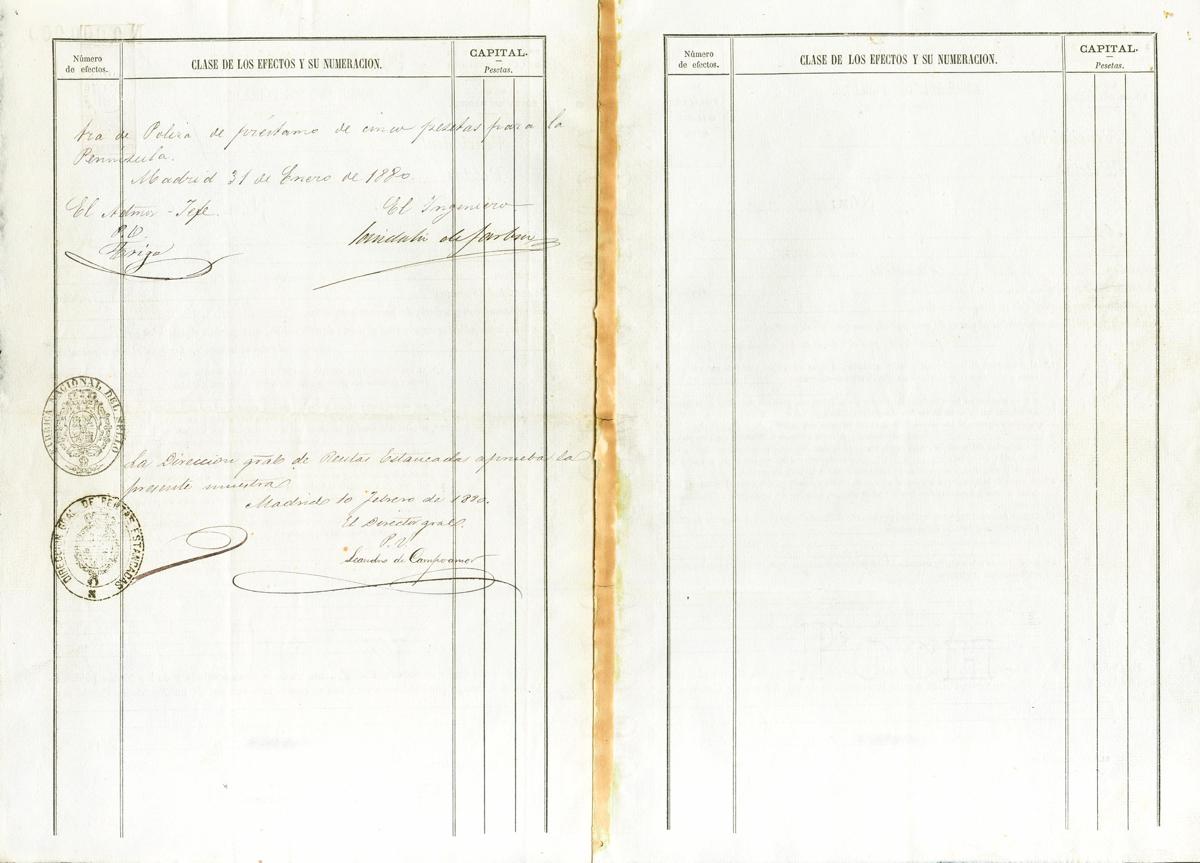 Número
de efectos.
CLASE DE LOS EFECTOS Y SU NUMERACION.
CAPITAL.
Pesetas.
tra de Poliza de préstamo de cinco pesetas para la
Península.
Madrid 31 de Enero de 1880.
El Admor - Jefe
El Ingeniero
P.O.
FABRICA NACIONAL DEL SELLO
La Direccion gral de Rentas Estancadas aprueba la
presente muestra
Madrid 10 Febrero de 1880.
El Director gral.
P. V.
Leandro de Campoamor
DIRECCION GRAL DE RENTAS ESTANCADAS
Número
de efectos.
CLASE DE LOS EFECTOS Y SU NUMERACION.
CAPITAL.
Pesetas.